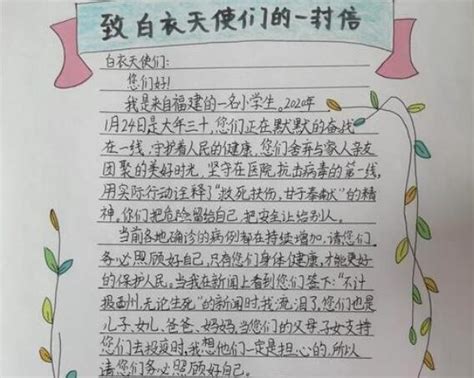 致白衣天使们的一封信
白衣天使们:
您们好!
我是来自福建的一名小学生。2020年
1月24日是大年三十,您们正在默默的奋战
在一线,守护着人民的健康,您们舍弃与家人亲友
团聚的美好时光,坚守在医院抗击病毒的第一线,
用实际行动诠释了“救死扶伤,甘于奉献”的精
神,你们把危险留给自己,把安全让给别人。
当前各地确诊的病例都在持续增加,请您们
务必照顾好自己,只有您们身体健康,才能更好
的保护人民,当我在新闻上看到您们签下:“不计
报酬,无论生死”的新闻时,我流泪了,您们也是
儿子、女儿、爸爸、妈妈,当您们的父母、子女支持
您们去投疫时,我想他们一定是担心的,所以
请您们务必照顾好自己。